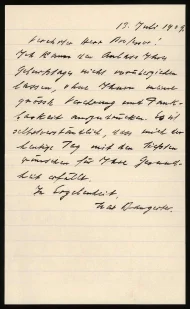 13. Juli 1929.
Verehrter Herr Professor!
Ich kann den Anlass Ihres
Geburtstags nicht vorübergehen
lassen, ohne Ihnen meine
grosse Verehrung und Dank-
barkeit auszudrücken. Es ist
selbstverständlich, dass mich der
heutige Tag mit den tiefsten
wünschen für Ihre Gesund-
heit erfüllt.
In Ergebenheit,